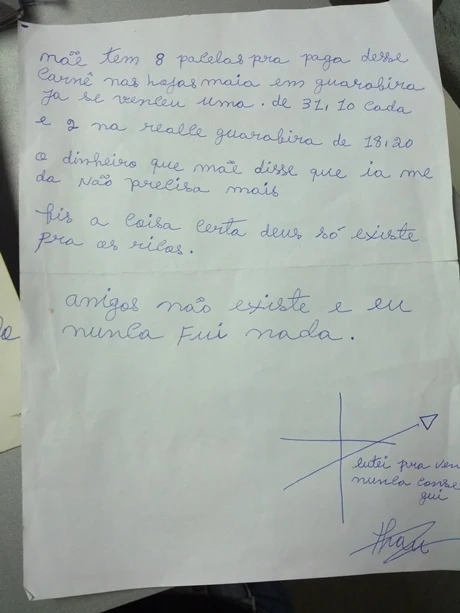 mãe tem 8 pacelas pra paga desse
carnê nas lojas maia em guarabira
ja se venceu uma . de 31,10 cada
e 2 na realle guarabira de 18,20
o dinheiro que mãe disse que ia me
da não precisa mais
fis a coisa certa deus só existe
pra os ricos.
amigos não existe e eu
nunca Fui nada.
lutei pra ven
nunca conse
gui